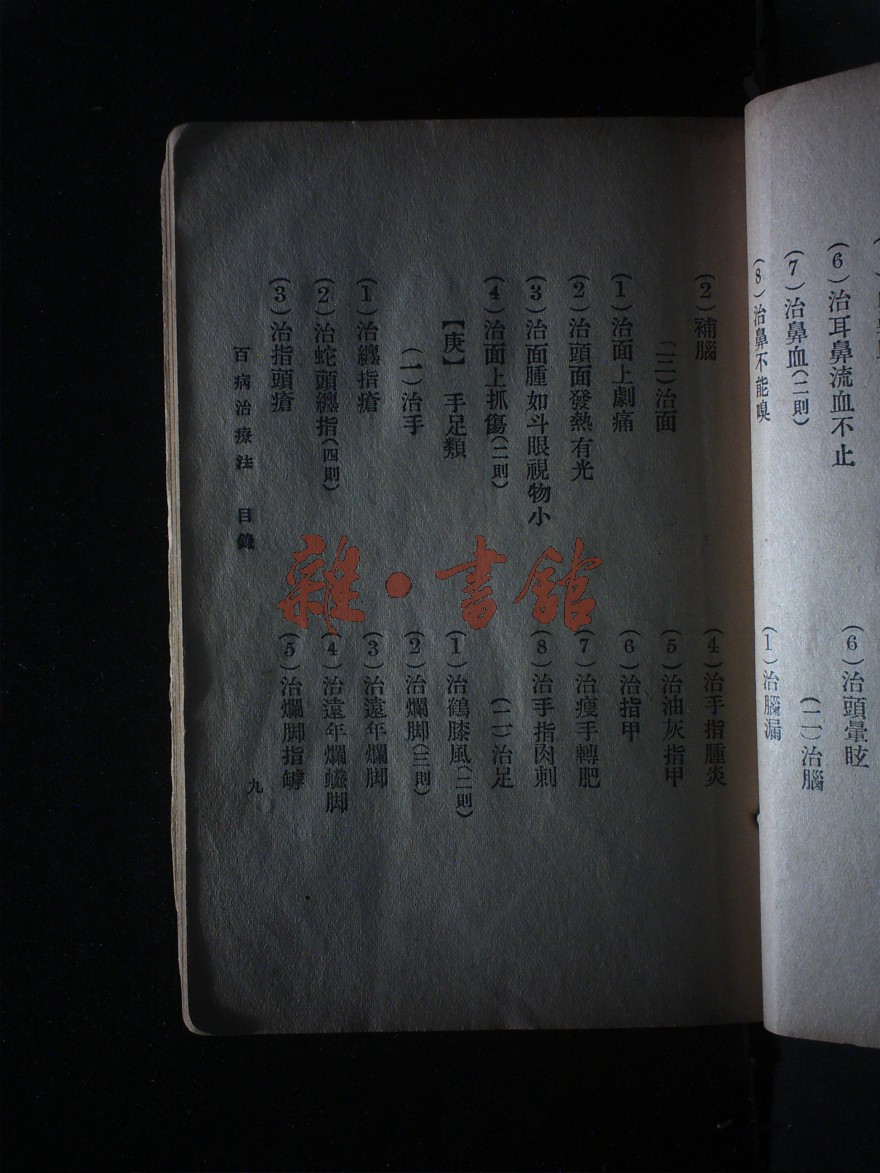 (6)治耳鼻流血不止
(7)治鼻血(二則)
(8)治鼻不能嗅
(6)治頭暈眩
(二)治腦
(1)治腦漏
(2)補腦
(三)治面
(1)治面上劇痛
(2)治頭面發熱有光
(3)治面腫如斗眼視物小
(4)治面上抓傷(二則)
【庚】 手足類
(一)治手
(1)治纏指瘡
(2)治蛇頭纏指(四則)
(3)治指頭瘡
(4)治手指腫炎
(5)治油灰指甲
(6)治指甲
(7)治瘦手轉肥
(8)治手指肉刺
(二)治足
(1)治鶴膝風(二則)
(2)治爛脚(三則)
(3)治遠年爛脚
(4)治遠年爛臁脚
(5)治爛脚指罅
百病治療法 目錄
九
雜·書館